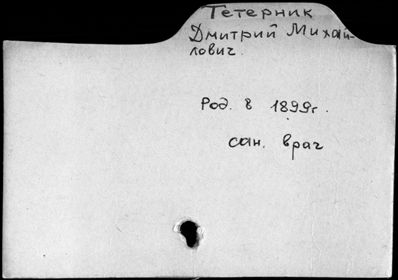 Тетерник
Дмитрий Михай-
лович.
Род. в 1899г.
сан. врач